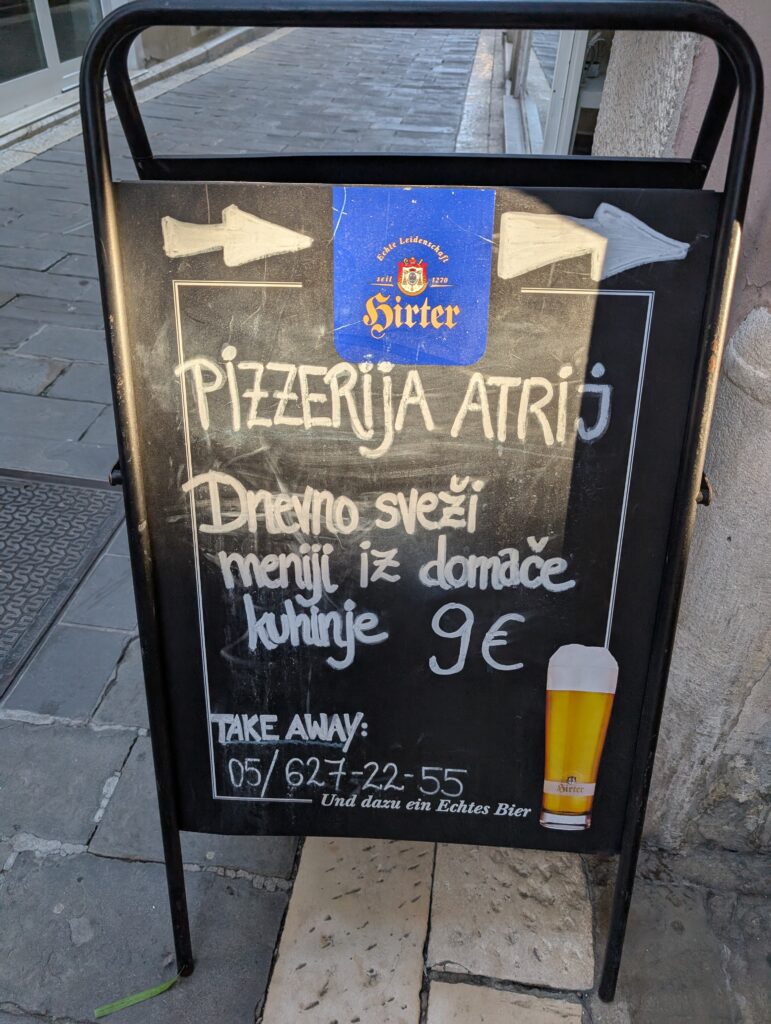 Echte Leidenschaft
seit 1270
Hirter
PIZZERIJA ATRIJ
Dnevno sveži
meniji iz domače
kuhinje 9€
TAKE AWAY:
05/627-22-55
Und dazu ein Echtes Bier
Hirter